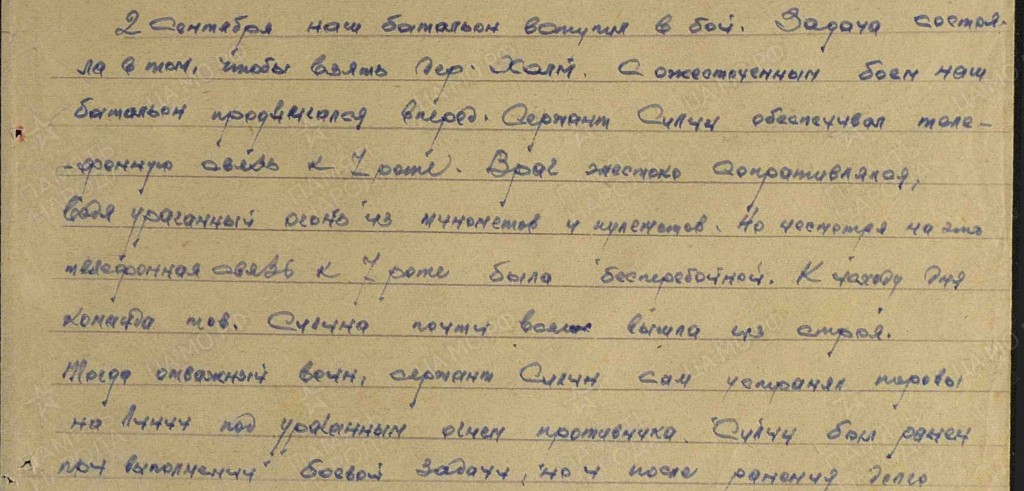 2 Сентября наш батальон вступил в бой. Задача состоя-
ла в том, чтобы взять дер. Холм. С ожесточенным боем наш
батальон продвигался вперед. Сержант Силин обеспечивал теле-
-фонную связь к 7 роте. Враг жестоко сопративлялся,
ведя ураганный огонь из минометов и пулеметов. Но несмотря на это
телефонная связь к 7 роте была бесперебойной. К исходу дня
команда тов. Силина почти вся вышла из строя.
Тогда отважный воин, сержант Силин сам устранял порывы
на линии под ураганным огнем противника. Силин был ранен
при выполнении боевой задачи, но и после ранения